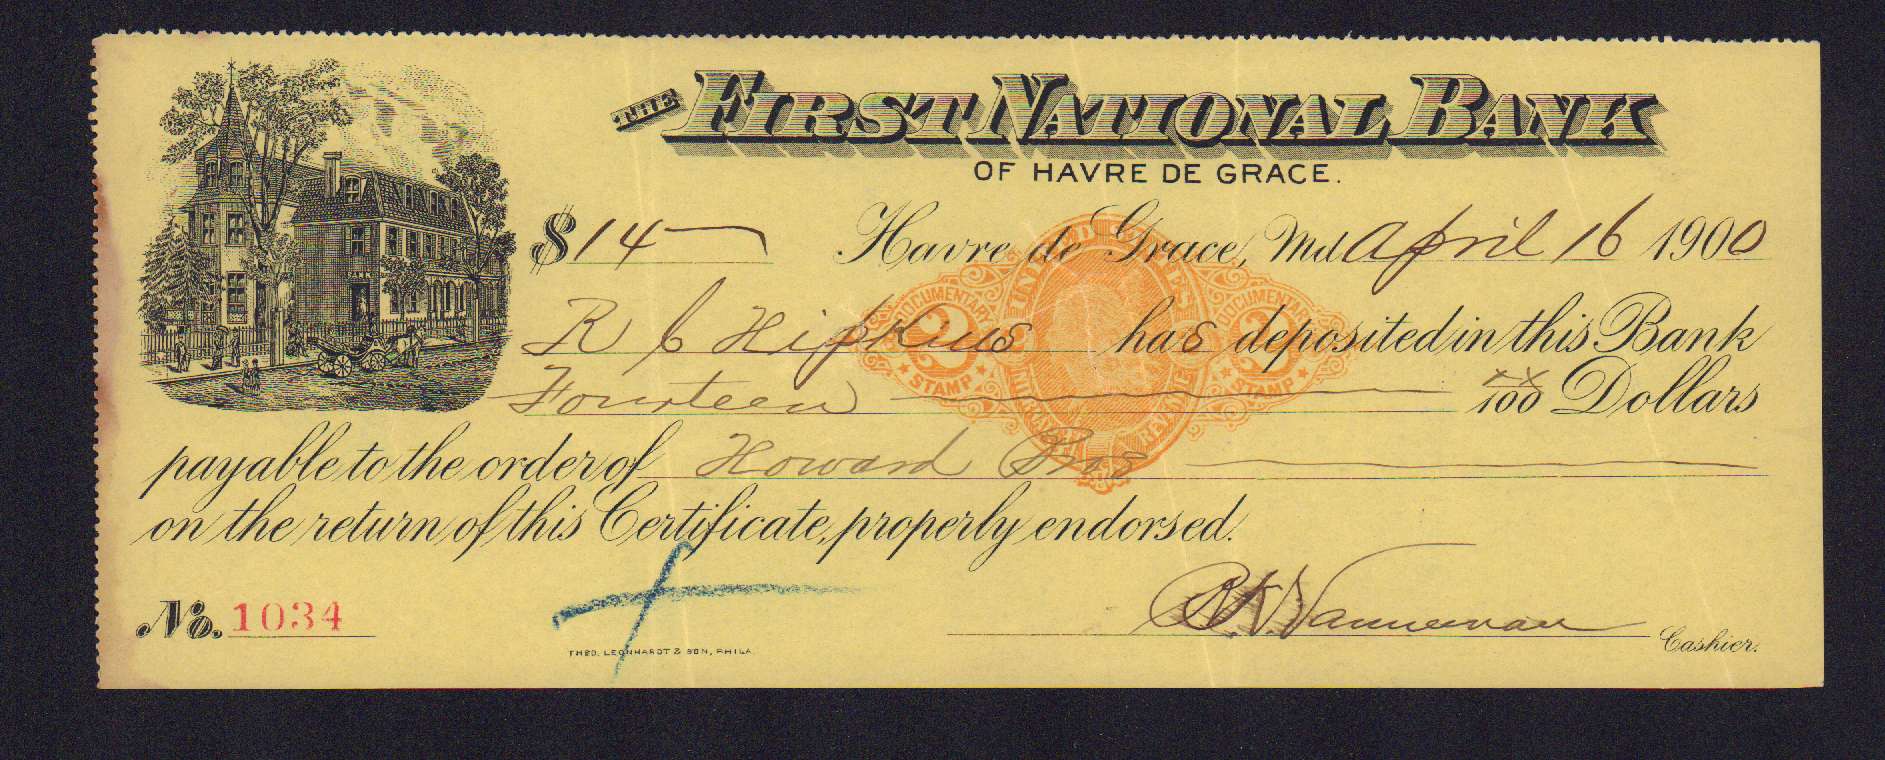 THE FIRST NATIONAL BANK
OF HAVRE DE GRACE.
$14 Havre de Grace, Md. April 16 1900
R C Hipkins has deposited in this Bank
Fourteen xx/100 Dollars
payable to the order of Howard Bros
on the return of this Certificate, properly endorsed.
No. 1034
R. K. Vanneman Cashier.
THEO. LEONHARDT & SON, PHILA.
UNITED STATES
DOCUMENTARY DOCUMENTARY
2 2
STAMP STAMP
INTERNAL REVENUE
BANK